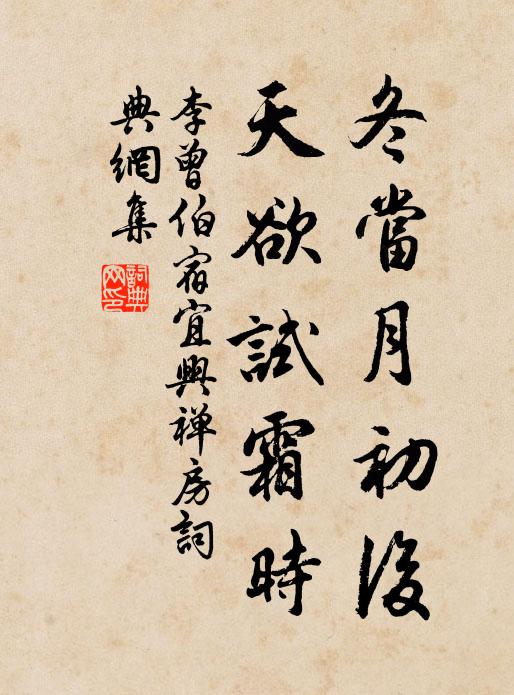 冬當月初後
天欲試霜時
李曾伯宿宜興禅房詞
典網集
詞典網印